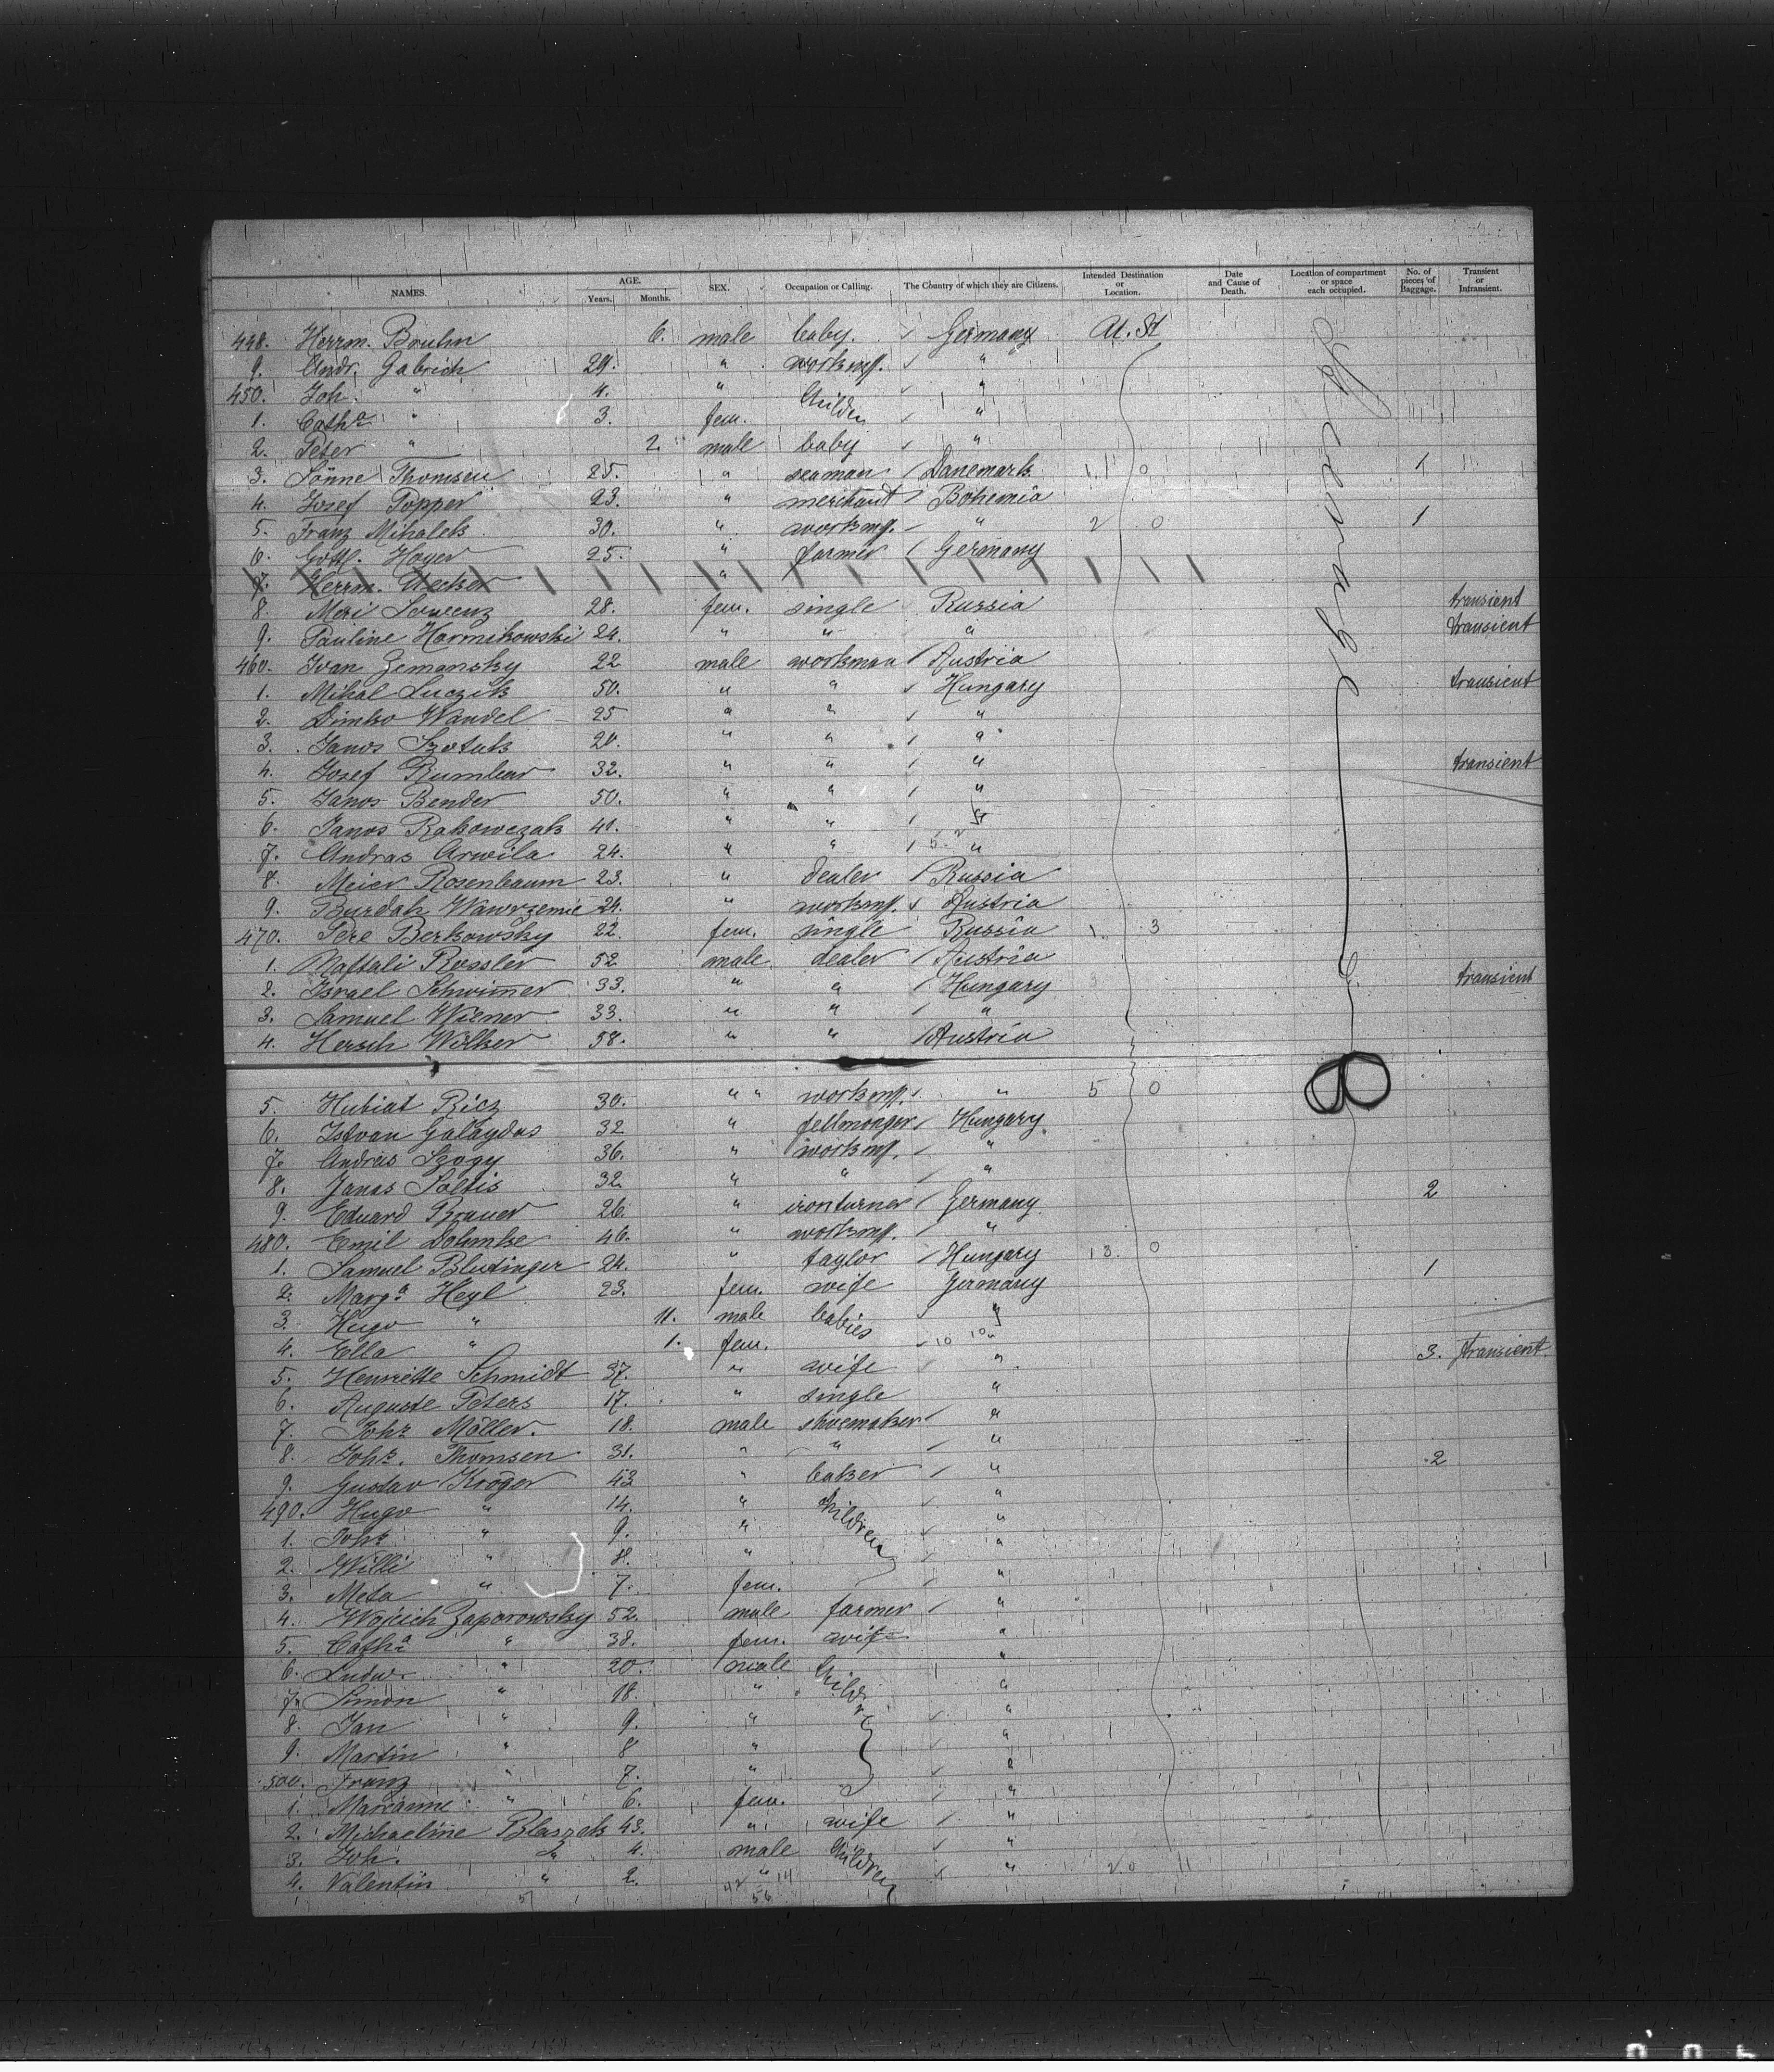 NAMES. AGE. Years. Months. SEX. Occupation or Calling. The Country of which they are Citizens. Intended Destination or Location. Date and Cause of Death. Location of compartment or space each occupied. No. of pieces of Baggage. Transient or Intransient.
448. Herrm. Bruhn 6. male baby. Germany U. St Steerage
9. Andr. Gabrich 29. " workmn. "
450. Joh. " 4. " Childr "
1. Catha " 3. fem. "
2. Peter " 2 male baby "
3. Sönne Thomsen 25. " seaman Danemark 1 0 1
4. Josef Popper 23. " merchant Bohemia
5. Franz Mihalek 30. " workmn. " 2 0 1
6. Gottf. Hoyer 25. " farmer Germany
7. Herrm. Uecker "
8. Meri Lawrenz 28. fem. single Russia transient
9. Pauline Harmikowski 24. " " " transient
460. Ivan Zemansky 22 male workman Austria
1. Mihal Luczik 50. " " Hungary transient
2. Dimko Wandel 25 " " "
3. Janos Szotak 20. " " "
4. Josef Rumbar 32. " " " transient
5. Janos Bender 50. " " "
6. Janos Rakowczak 41. " " "
7. Andras Arwila 24. " " "
8. Meier Rosenbaum 23. " dealer Russia
9. Burdah Wawrzemie 24. " workmn. Austria
470. Pere Berkowsky 22 fem. single Russia 1 3
1. Naftali Rossler 52 male dealer Austria
2. Israel Schwimer 33. " " Hungary transient
3. Samuel Wiener 33. " " "
4. Hersch Wilker 58. " " Austria
5. Hubiat Ricz 30. " " workmn. " 5 0
6. Istvan Galaydas 32 " fellmonger Hungary
7. Andras Szogy 36. " workmn. "
8. Janos Soltis 32. " " " 2
9. Eduard Brauer 26. " ironturner Germany
480. Emil Dohmke 46. " workmn. "
1. Samuel Blutinger 24. " taylor Hungary 13 0 1
2. Marga Heyl 23. fem. wife Germany
3. Hugo " 11. male babies "
4. Ella " 1. fem. 10 10 " 3. transient
5. Henriette Schmidt 37. " wife "
6. Auguste Peters 17. " single "
7. Johs Möller. 18. male shoemaker "
8. Johs. Thomsen 31. " " " 2
9. Gustav Kröger 43 " baker "
490. Hugo " 14. " Children "
1. Johs " 9. " "
2. Willi " 8. " "
3. Meta " 7. fem. "
4. Wojcich Zaporowsky 52. male farmer "
5. Catha " 38. fem. wife "
6. Ludw. " 20. male Childr "
7. Simon " 18. " "
8. Jan " 9. " "
9. Martin " 8 " "
500. Franz " 7. " "
1. Marianne " 6. fem. "
2. Michaeline Blaszek 43. " wife "
3. Joh. " 4. male Children "
4. Valentin " 2. " " 20
57 42 14
56